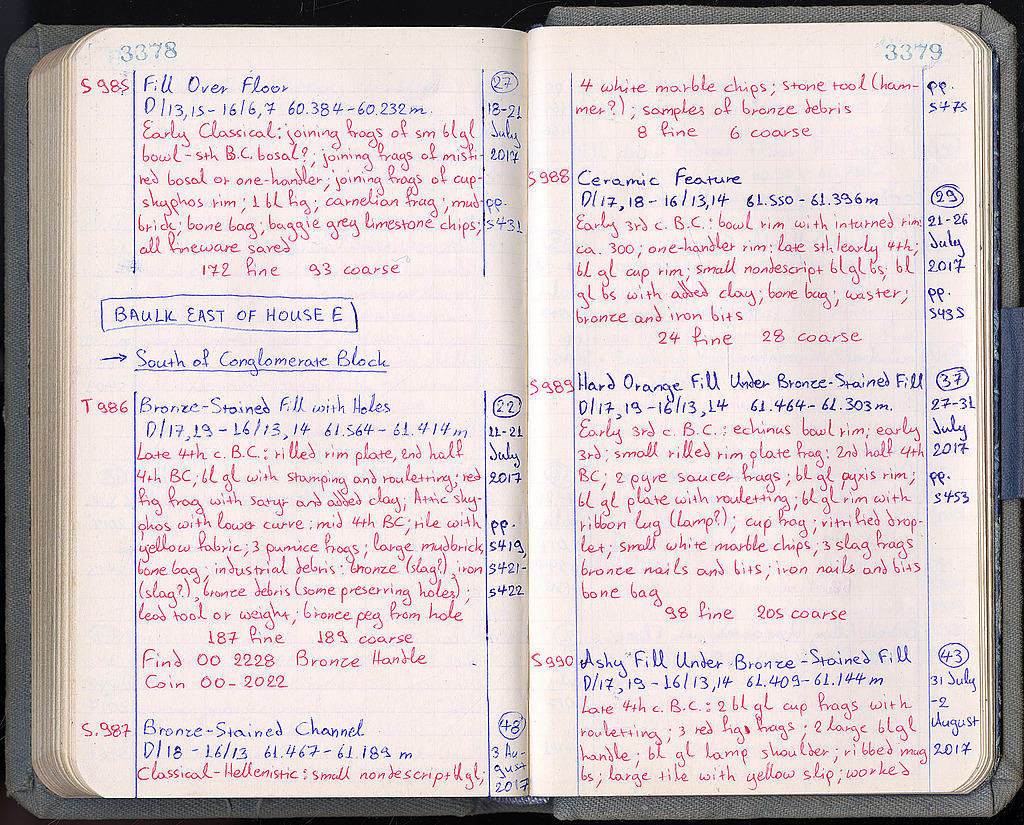 3378
S 985 Fill Over Floor 27
D/13,15-16/6,7 60.384-60.232m. 18-21
Early Classical: joining frags of sm bl gl July
bowl - 5th B.C. bosal?; joining frags of misfi- 2017
red bosal or one-handler; joining frags of cup-
skyphos rim; 1 bl fig; carnelian frag; mud- pp.
brick; bone bag; baggie grey limestone chips; 5431
all fineware saved
172 fine 93 coarse
BAULK EAST OF HOUSE E
→ South of Conglomerate Block
T 986 Bronze-Stained Fill with Holes 22
D/17,19-16/13,14 61.564-61.414m 11-21
Late 4th c. B.C.: rilled rim plate, 2nd half July
4th BC; bl gl with stamping and rouletting; red 2017
fig frag with satyr and added clay; Attic sky-
phos with lower curve; mid 4th BC; tile with pp.
yellow fabric; 3 pumice frags; large mudbrick, 5419,
bone bag; industrial debris: bronze (slag?), iron 5421-
(slag?), bronze debris (some preserving holes); 5422
lead tool or weight; bronze peg from hole
187 fine 189 coarse
Find OO 2228 Bronze Handle
Coin OO-2022
S.987 Bronze-Stained Channel 48
D/18-16/13 61.467-61.189 m 3 Au-
Classical-Hellenistic: small nondescript bl gl; gust
2017
3379
4 white marble chips; stone tool (ham- pp.
mer?); samples of bronze debris 5475
8 fine 6 coarse
S 988 Ceramic Feature 29
D/17,18-16/13,14 61.550-61.396m
Early 3rd c. B.C.: bowl rim with inturned rim 21-26
ca. 300; one-handler rim: late 5th/early 4th; July
bl gl cup rim; small nondescript bl gl bs; bl 2017
gl bs with added clay; bone bag; waster; pp.
bronze and iron bits 5435
24 fine 28 coarse
S 989 Hard Orange Fill Under Bronze-Stained Fill 37
D/17,19-16/13,14 61.464-61.303m. 27-31
Early 3rd c. B.C.: echinus bowl rim; early July
3rd; small rilled rim plate frag: 2nd half 4th 2017
BC; 2 pyre saucer frags; bl gl pyxis rim; pp.
bl gl plate with rouletting; bl gl rim with 5453
ribbon lug (lamp?); cup frag; vitrified drop-
let; small white marble chips; 3 slag frags
bronze nails and bits; iron nails and bits
bone bag
98 fine 205 coarse
S 990 Ashy Fill Under Bronze-Stained Fill 43
D/17,19-16/13,14 61.409-61.144m 31 July
Late 4th c. B.C.: 2 bl gl cup frags with -2
rouletting; 3 red fig frags; 2 large bl gl August
handle; bl gl lamp shoulder; ribbed mug 2017
bs; large tile with yellow slip; worked